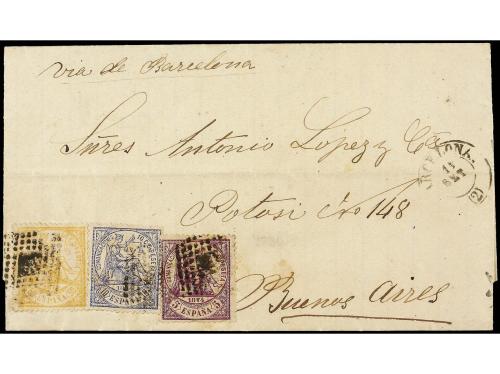 via de Barcelona
Sűres Antonio López y Ca
Potosi nro 148
Buenos Aires
ARCELONA
14
SET
(2)
ESPAÑA
10
ESPAÑA
5 1874 5
ESPAÑA